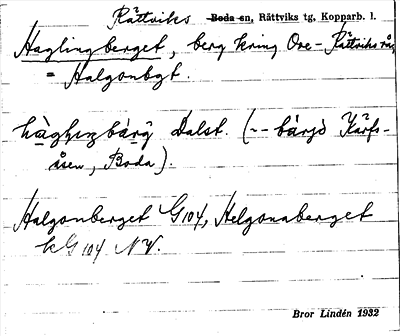 Rättviks Boda sn, Rättviks tg, Kopparb. l.
Haglingberget, berg kring Ore-Rättviks rån
= Halgonbgt.
Dalst. (-- Kärfs-
åsen, Boda).
Halgonberget G104, Helgonaberget
kG104 NV.
Bror Lindén 1932